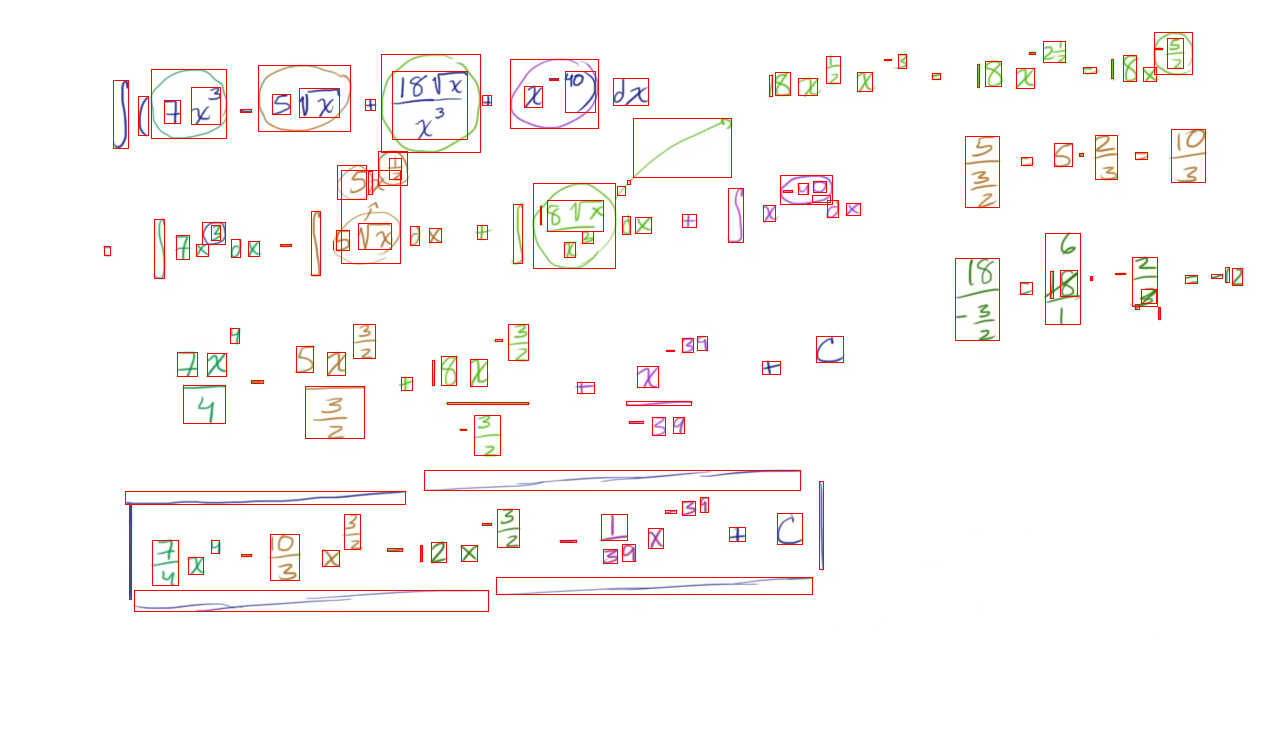 ∫(7x³ - 5√x + 18√x/x³ + x⁻⁴⁰) dx
18x^(1/2) x^(-3) = 18x^(-2 1/2) = 18x^(-5/2)
5/(3/2) = 5 · 2/3 = 10/3
5x^(1/2)
= ∫7x³dx - ∫5√x dx + ∫18√x/x³ dx + ∫x⁻⁴⁰dx
18/(-3/2) = 18/1 · -2/3 = -12
6
7x⁴/4 - 5x^(3/2)/(3/2) + 18x^(-3/2)/(-3/2) + x⁻³⁹/-39 + C
7/4 x⁴ - 10/3 x^(3/2) - 12x^(-3/2) - 1/39 x⁻³⁹ + C